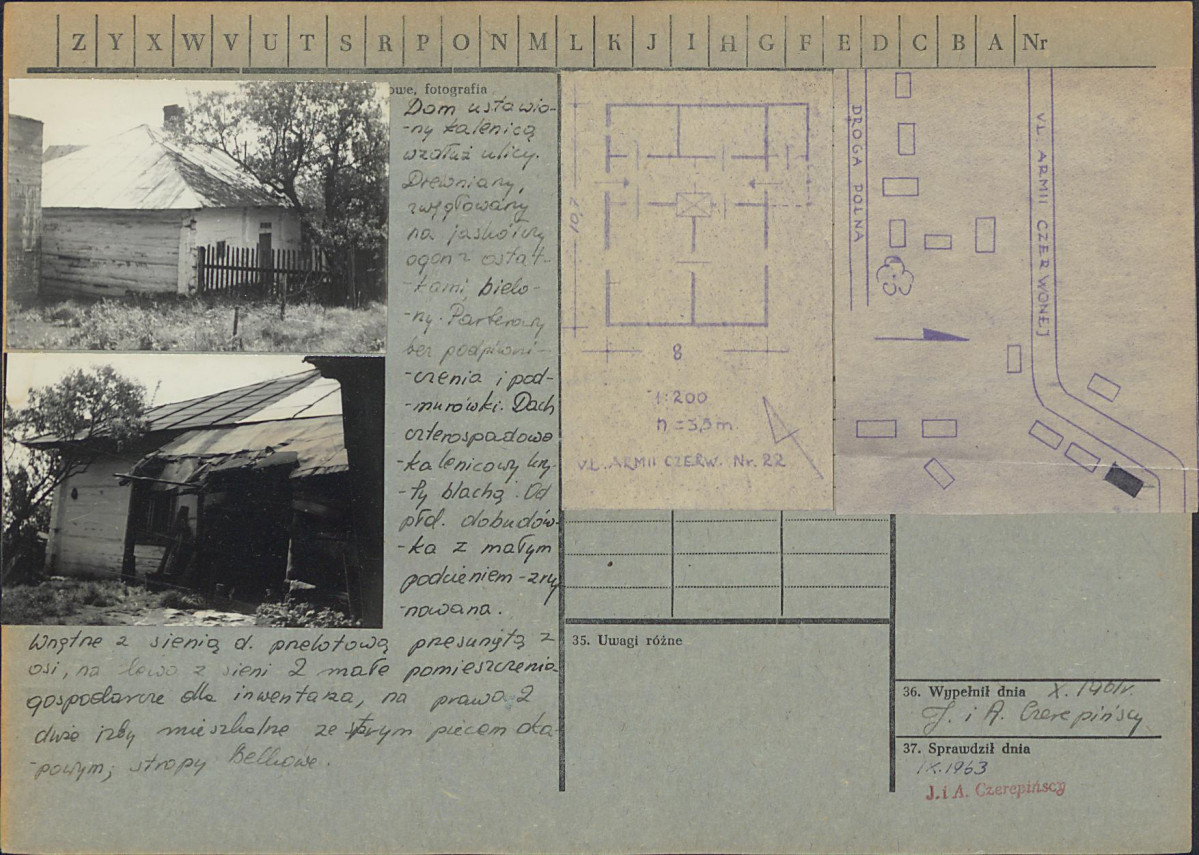 Z Y X W V U T S R P O N M L K J I H G F E D C B A Nr
owe, fotografia
Dom ustawio-
-ny kalenicą
wzdłuż ulicy.
Drewniany,
zwęgłowany
na jaskółczy
ogon z ostat-
-kami, bielo-
-ny. Parterowy
bez podpiwni-
-czenia i pod-
-murówki. Dach
czterospadowo
-kalenicowy kry-
-ty blachą. Od
płd. dobudów-
-ka z małym
podcieniem - zruj
-nowana.
Wnętrze z sienią d. przelotową przesuniętą z
osi, na lewo z sieni 2 małe pomieszczenia
gospodarcze dla inwentarza, na prawo 2
duże izby mieszkalne ze starym piecem oka-
-powym; stropy Belkowe.
10,2
8
1:200
h = 3,9 m
UL. ARMII CZERW. Nr. 22
DROGA POLNA
UL. ARMII CZERWONEJ
35. Uwagi różne
36. Wypełnił dnia X. 1961r.
J. i A. Czerepińscy
37. Sprawdził dnia
IX.1963
J. i A. Czerepińscy